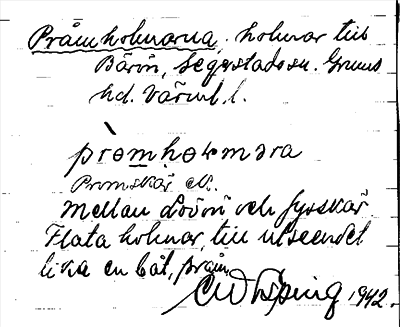 Pråmholmarna, holmar till
Bärön, Segerstads sn. Grums
hd. Värml. l.
pròmhoɽmɘra
Promskär el.
Mellan Lövön och Fysskär
Flata holmar, till utseendet
lika en båt, pråm.
1942.